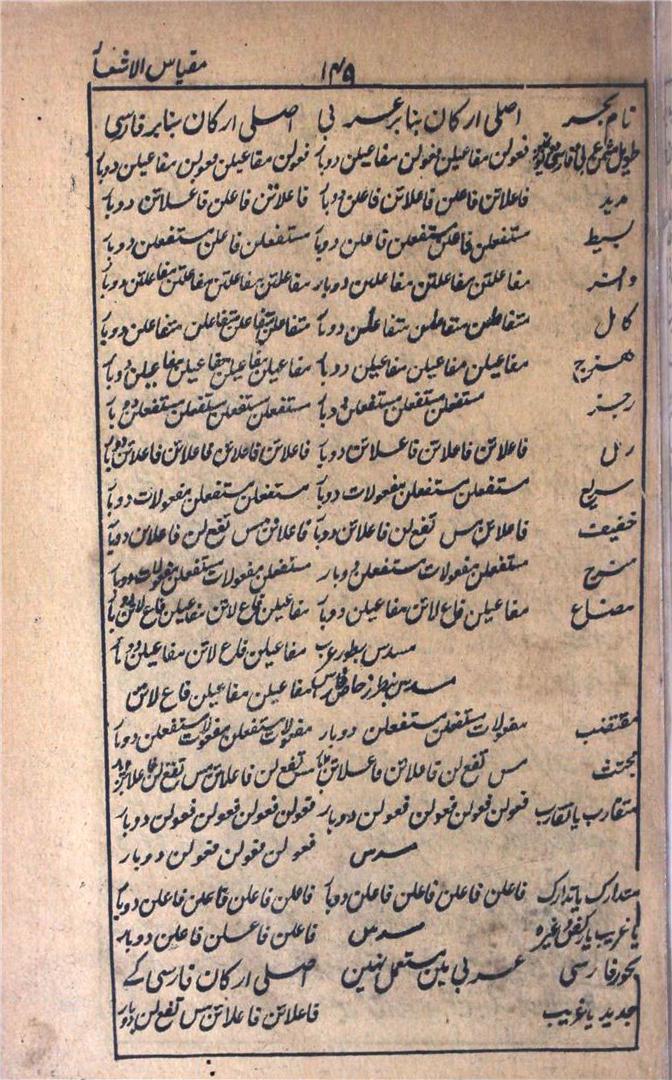 مقیاس الاشعار
۱۴۹
نام بحر اصلی ارکان بنابر عربی اصلی ارکان بنابر فارسی
طویل مثمن عربی فعولن مفاعیلن فعولن مفاعیلن دوبار فعولن مفاعیلن فعولن مفاعیلن دوبار
مدید فاعلاتن فاعلن فاعلاتن فاعلن دوبار فاعلاتن فاعلن فاعلاتن دوبار
بسیط مستفعلن فاعلن مستفعلن فاعلن دوبار مستفعلن فاعلن مستفعلن دوبار
وافر مفاعلتن مفاعلتن مفاعلتن دوبار مفاعلتن مفاعلتن مفاعلتن مفاعلتن دوبار
کامل متفاعلن متفاعلن متفاعلن دوبار متفاعلن متفاعلن متفاعلن متفاعلن دوبار
ہزج مفاعیلن مفاعیلن مفاعیلن دوبار مفاعیلن مفاعیلن مفاعیلن مفاعیلن دوبار
رجز مستفعلن مستفعلن مستفعلن دوبار مستفعلن مستفعلن مستفعلن مستفعلن دوبار
رمل فاعلاتن فاعلاتن فاعلاتن دوبار فاعلاتن فاعلاتن فاعلاتن فاعلاتن دوبار
سریع مستفعلن مستفعلن مفعولات دوبار مستفعلن مستفعلن مفعولات دوبار
خفیف فاعلاتن مس تفع لن فاعلاتن دوبار فاعلاتن مس تفع لن فاعلاتن دوبار
منسرح مستفعلن مفعولات مستفعلن دوبار مستفعلن مفعولات مستفعلن مفعولات دوبار
مضارع مفاعیلن فاع لاتن مفاعیلن دوبار مفاعیلن فاع لاتن مفاعیلن فاع لاتن دوبار
مسدس بطور عرب مفاعیلن فاع لاتن مفاعیلن دوبار
مسدس بطرز خاص فارس مفاعیلن مفاعیلن فاع لاتن
مقتضب مفعولات مستفعلن مستفعلن دوبار مفعولات مستفعلن مفعولات مستفعلن دوبار
مجتث مس تفع لن فاعلاتن فاعلاتن دوبار مس تفع لن فاعلاتن مس تفع لن فاعلاتن دوبار
متقارب یا تقارب فعولن فعولن فعولن فعولن دوبار فعولن فعولن فعولن فعولن دوبار
مسدس فعولن فعولن فعولن دوبار
متدارک یا تدارک فاعلن فاعلن فاعلن فاعلن دوبار فاعلن فاعلن فاعلن فاعلن دوبار
یا غریب یا رکض وغیرہ مسدس فاعلن فاعلن فاعلن دوبار
بحور فارسی عربی مین مستعمل نہین اصلی ارکان فارسی کے
جدید یا غریب فاعلاتن فاعلاتن مس تفع لن دوبار